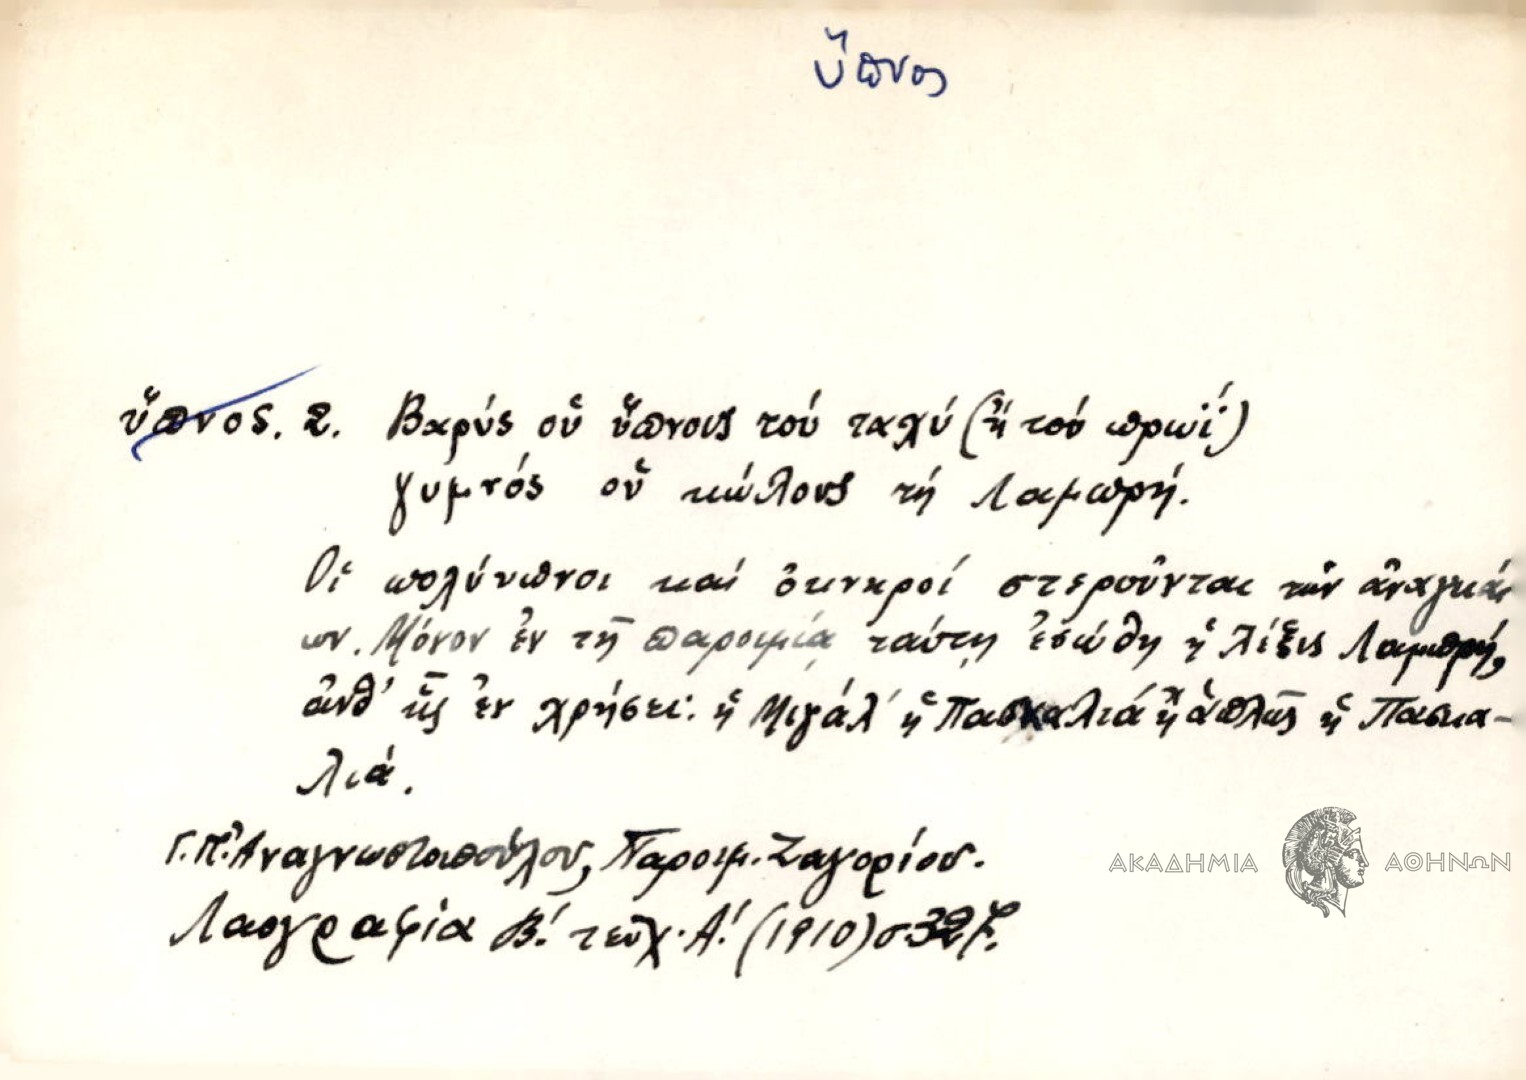 ὕπνος
ὕπνος. 2. Βαρύς οὕ ὕπνους τού ταχύ (ἤ τού πρωΐ)
γυμνός οὕ κώλους τή Λαμπρή.
Οἱ πολύυπνοι καί ὀκνηροί στεροῦνται τῶν ἀναγκαί
ων. Μόνον ἐν τῇ παροιμίᾳ ταύτῃ ἐσώθη ἡ λέξις Λαμπρή,
ἀνθ' ἧς ἐν χρήσει: ἡ Μιγάλ' ἡ Πασκαλιά ἤ ἁπλῶς ἡ Πασκα-
λιά.
Γ. Π. Ἀναγνωστοπούλου, Παροιμ. Ζαγορίου.
Λαογραφία Β.' τεῦχ. Α.' (1910) σ.
ΑΚΑΔΗΜΙΑ ΑΘΗΝΩΝ